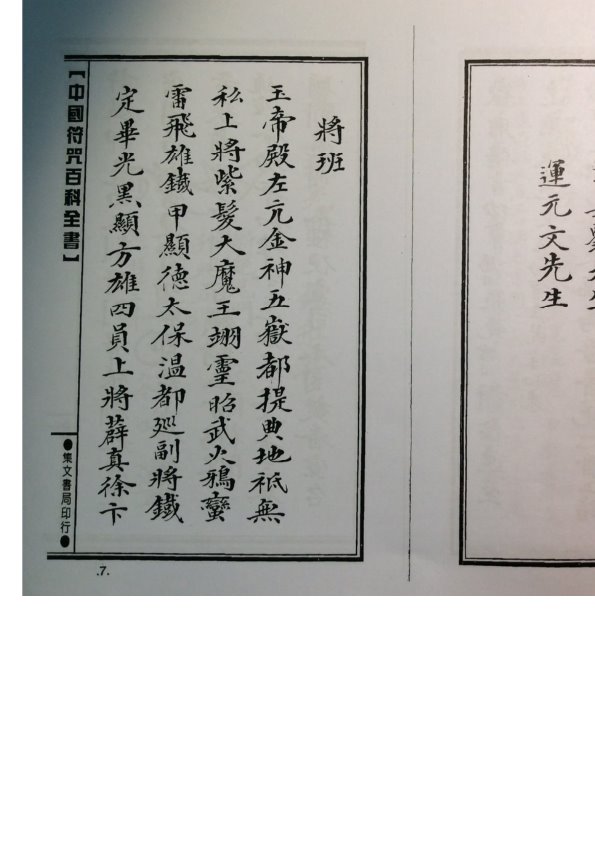 運元文先生
將班
玉帝殿左亢金神五嶽都提典地祇無
私上將紫髮大魔王翊靈昭武火鴉蠻
雷飛雄鐵甲顯德太保溫都廵副將鐵
定畢光黑顯方雄四員上將薛真徐卞
【中國符咒百科全書】
●集文書局印行●
.7.